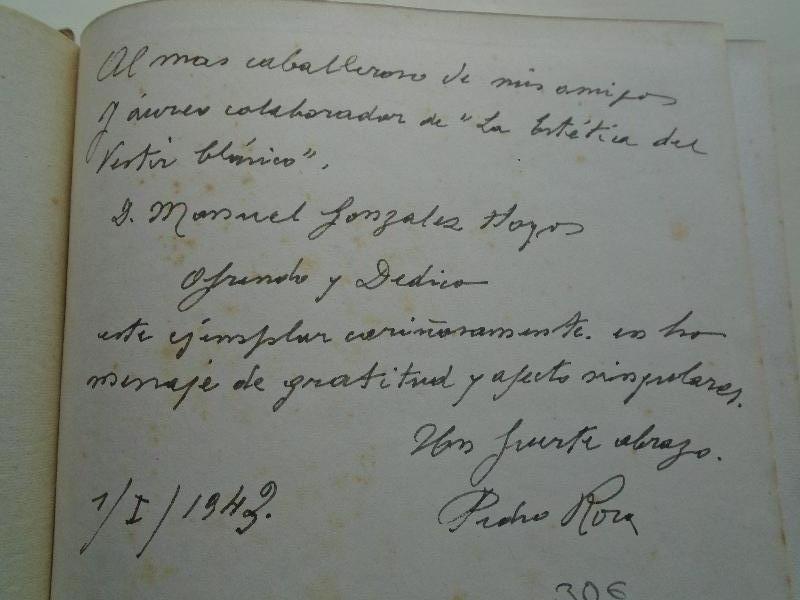 Al mas caballeroso de mis amigos
y áureo colaborador de "La Estética del
Vestir Clásico",
D. Manuel Gonzalez Hoyos
Ofrendo y Dedico
este ejemplar cariñosamente. en ho
menaje de gratitud y afecto singulares.
Un fuerte abrazo.
1/I/1943.
Pedro Roca
30€